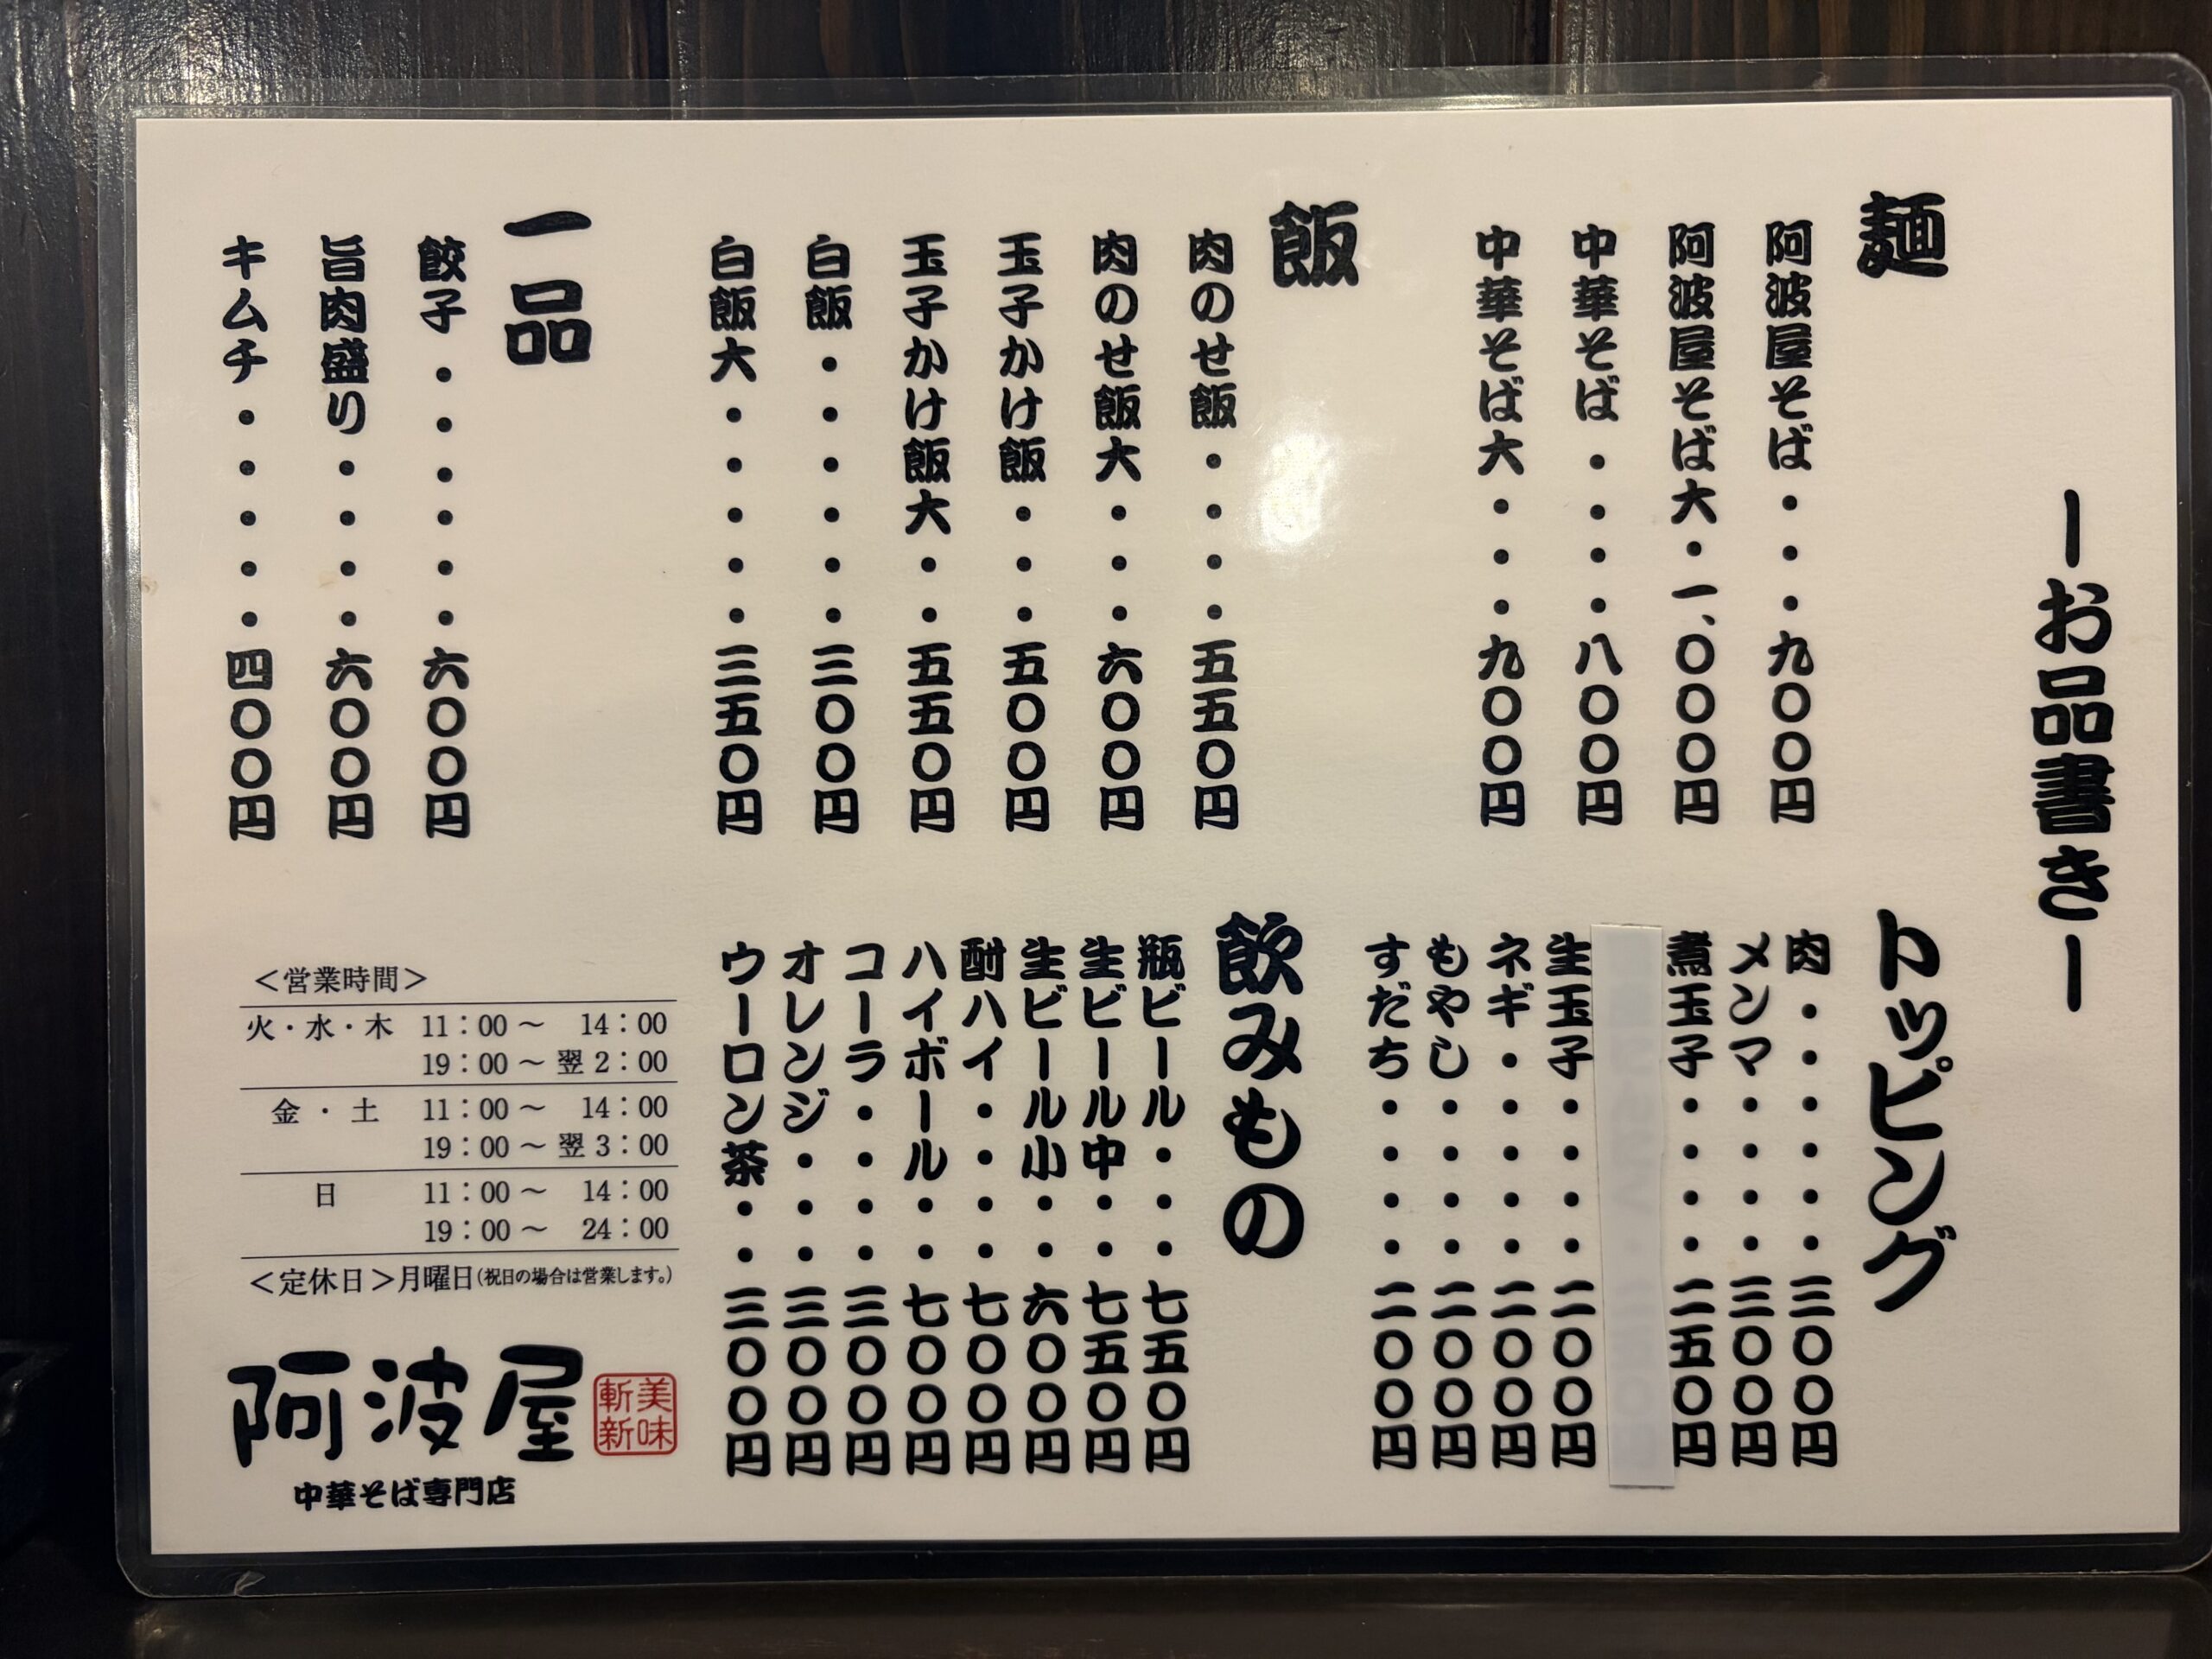 ーお品書きー
麺
阿波屋そば・・・九〇〇円
阿波屋そば大・一、〇〇〇円
中華そば・・・・八〇〇円
中華そば大・・・九〇〇円
飯
肉のせ飯・・・・五五〇円
肉のせ飯大・・・六〇〇円
玉子かけ飯・・・五〇〇円
玉子かけ飯大・・五五〇円
白飯・・・・・・三〇〇円
白飯大・・・・・三五〇円
一品
餃子・・・・・・六〇〇円
旨肉盛り・・・・六〇〇円
キムチ・・・・・四〇〇円
トッピング
肉・・・・・・三〇〇円
メンマ・・・・三〇〇円
煮玉子・・・・二五〇円
生玉子・・・・二〇〇円
ネギ・・・・・二〇〇円
もやし・・・・二〇〇円
すだち・・・・二〇〇円
飲みもの
瓶ビール・・・七五〇円
生ビール中・・七五〇円
生ビール小・・六〇〇円
酎ハイ・・・・七〇〇円
ハイボール・・七〇〇円
コーラ・・・・三〇〇円
オレンジ・・・三〇〇円
ウーロン茶・・三〇〇円
＜営業時間＞
火・水・木 11：00～ 14：00
19：00～翌2：00
金・土 11：00～ 14：00
19：00～翌3：00
日 11：00～ 14：00
19：00～ 24：00
＜定休日＞月曜日(祝日の場合は営業します。)
阿波屋
美味
斬新
中華そば専門店